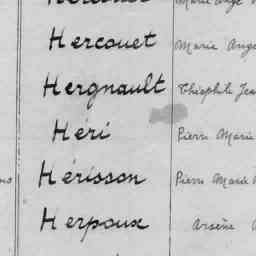 Hercouet Marie Ange
Hergnault Théophile Jea
Héri Pierre Marie
Hérisson Pierre Marie
Herpoux Arsène